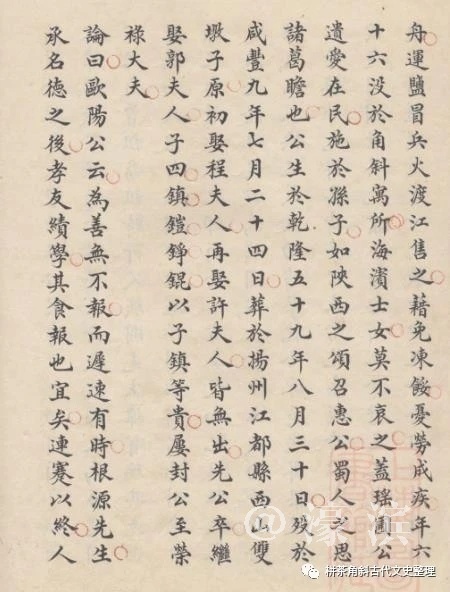 舟運鹽冒兵火渡江售之藉免凍餒憂勞成疾年六
十六没於角斜寓所海濱士女莫不哀之蓋瑤圃公
遺愛在民施於孫子如陝西之頌召惠公蜀人之思
諸葛瞻也公生於乾隆五十九年八月三十日殁於
咸豐九年七月二十四日葬於揚州江都縣西山雙
墩子原初娶程夫人再娶許夫人皆無出先公卒繼
娶郭夫人子四鎮鎧錚錕以子鎮等貴屢封公至榮
祿大夫
論曰歐陽公云為善無不報而遲速有時根源先生
承名德之後孝友績學其食報也宜矣連蹇以終人
@濠滨
栟茶角斜古代文史整理